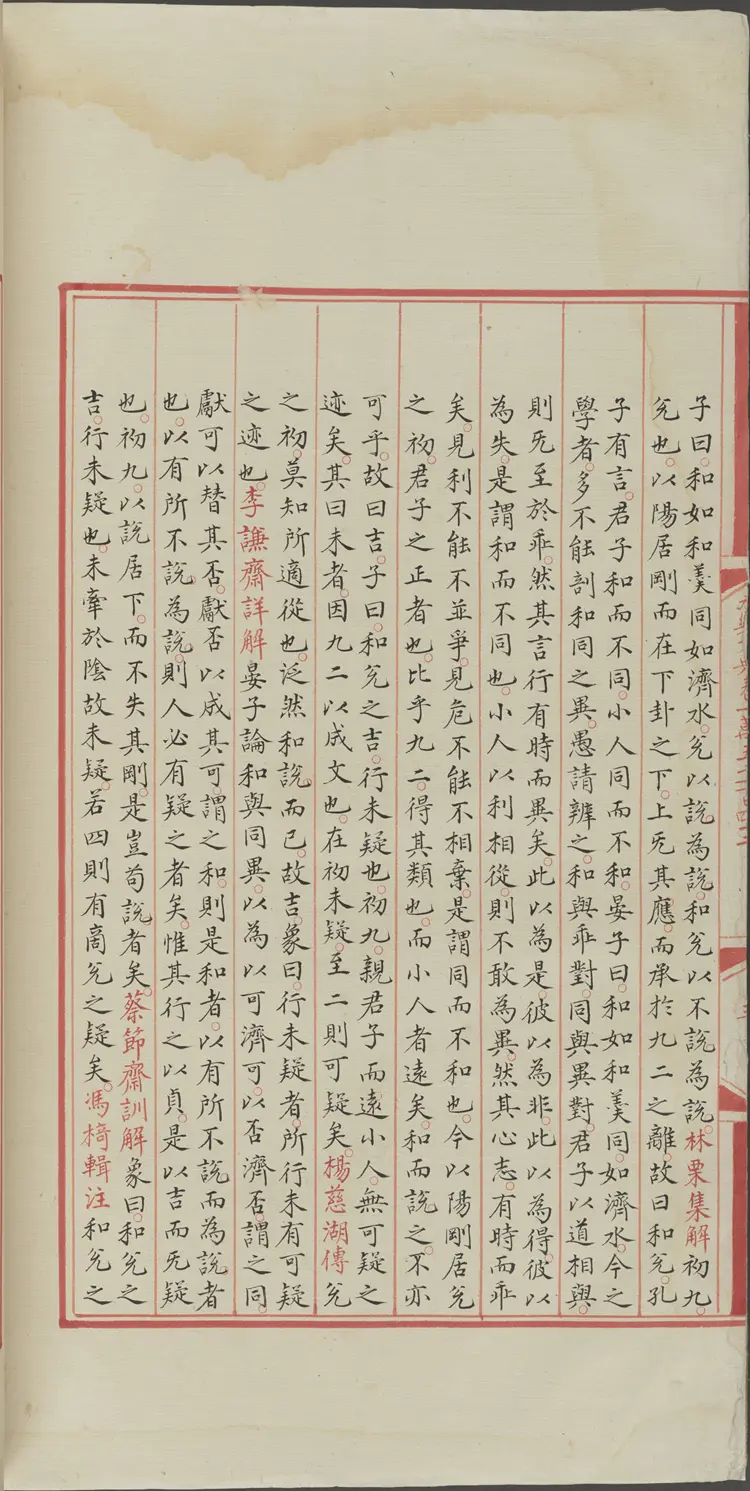 子曰和如和羹同如濟水兌以說為說和兌以不說為說林栗集解初九
兌也以陽居剛而在下卦之下上旡其應而承於九二之離故曰和兌孔
子有言君子和而不同小人同而不和晏子曰和如和羹同如濟水今之
學者多不能剖和同之異愚請辨之和與乖對同與異對君子以道相與
則旡至於乖然其言行有時而異矣此以為是彼以為非此以為得彼以
為失是謂和而不同也小人以利相從則不敢為異然其心志有時而乖
矣見利不能不並爭見危不能不相棄是謂同而不和也今以陽剛居兌
之初君子之正者也比乎九二得其類也而小人者遠矣和而說之不亦
可乎故曰吉子曰和兌之吉行未疑也初九親君子而遠小人無可疑之
迹矣其曰未者因九二以成文也在初未疑至二則可疑矣楊慈湖傳兌
之初莫知所適從也泛然和說而已故吉象曰行未疑者所行未有可疑
之迹也李謙齋詳解晏子論和與同異以為以可濟可以否濟否謂之同
獻可以替其否獻否以成其可謂之和則是和者以有所不說而為說者
也以有所不說為說則人必有疑之者矣惟其行之以貞是以吉而旡疑
也初九以說居下而不失其剛是豈苟說者矣蔡節齋訓解象曰和兌之
吉行未疑也未牽於陰故未疑若四則有商兌之疑矣馮椅輯注和兌之